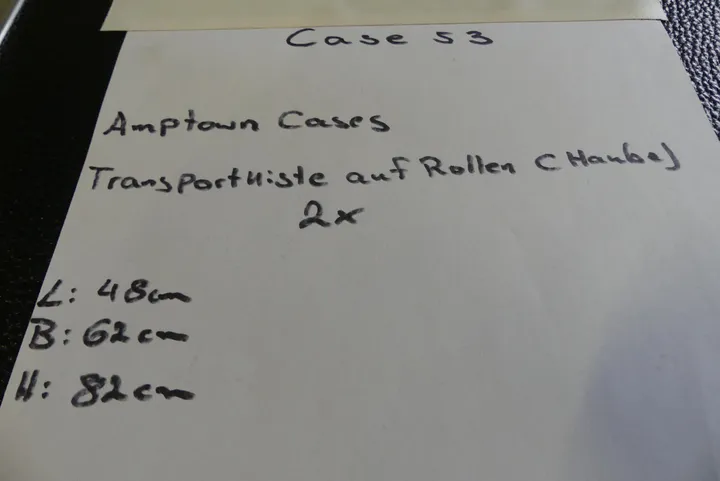 Case 53
Amptown Cases
Transportkiste auf Rollen (Haube)
2x
L: 48cm
B: 62cm
H: 82cm